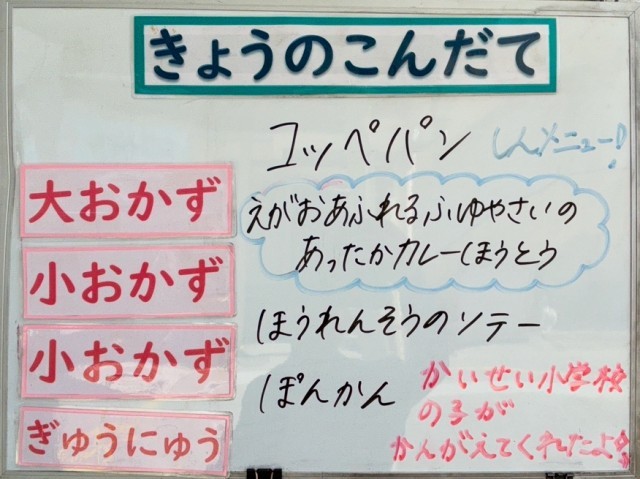 きょうのこんだて
コッペパン しんメニュー!
大おかず えがおあふれるふゆやさいの
あったかカレーほうとう
小おかず ほうれんそうのソテー
小おかず ぽんかん
ぎゅうにゅう
かいせい小学校
の子が
かんがえてくれたよ